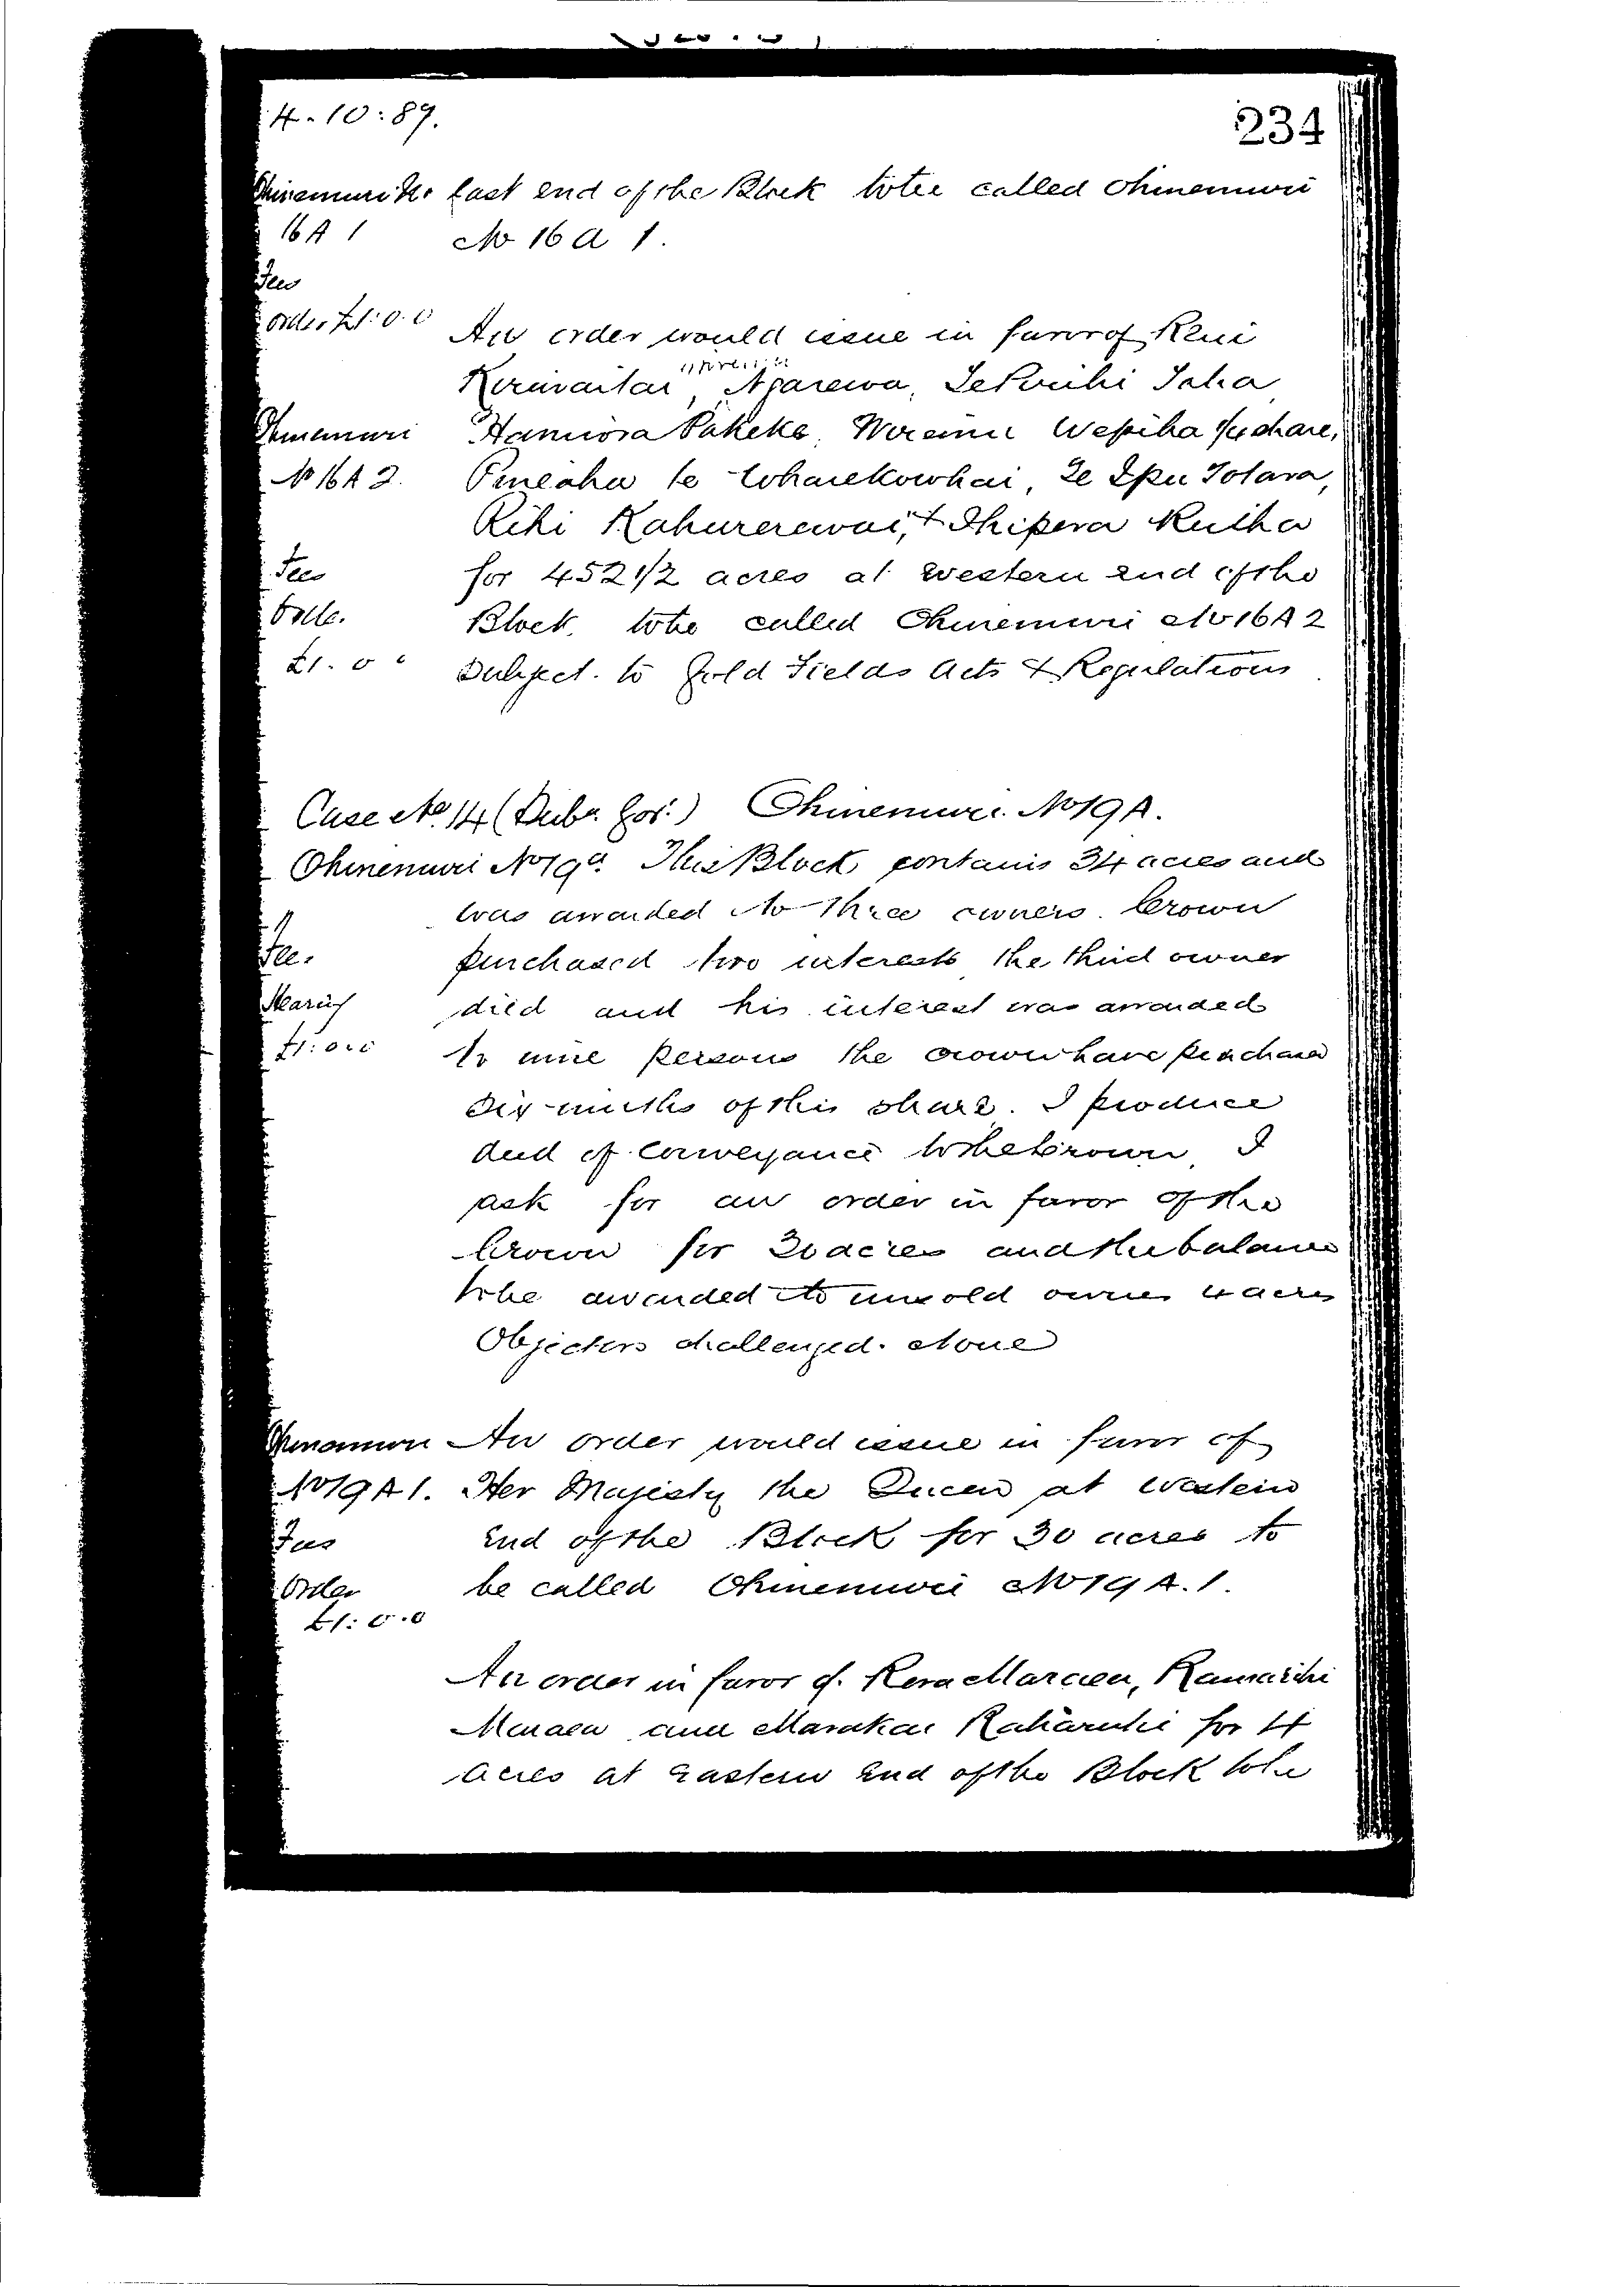 4-10:89.
234
Ohinemuri No East end of the Block to be called Ohinemuri
16A 1 No 16A 1.
Fees
Order £1:0.0
An order would issue in favor of Reni
Ngarewa, Taha
Ohinemuri Hamiora Pakeke, Wepiha share,
No 16A 2. te Wharekowhai, Te Ipu Totara,
Rihi Kahurerewai, &
Fees for 452 1/2 acres at western end of the
Order. Block, to be called Ohinemuri No 16A 2
£1. 0 0 Subject. to Gold Fields Acts & Regulations
Case No. 14 ( ) Ohinemuri. No 19A.
Ohinemuri No 19a. This Block contains 34 acres and
was awarded to three owners. Crown
Fee. purchased two interests the third owner
Hearing died and his interest was awarded
£1:0.0 to nine persons the crown have purchased
six-ninths of this share. I produce
deed of Conveyance to the Crown, I
ask for an order in favor of the
Crown for acres and the balance
to be awarded to unsold owners 4 acres
Objectors challenged. None
Ohinemuri An order would issue in favor of
No 19A 1. Her Majesty the Queen at western
Fees end of the Block for 30 acres to
Order be called Ohinemuri No 19 A. 1.
£1: 0.0
An order in favor of. Kera Maraea,
Maraea and for 4
acres at Eastern end of the Block to be